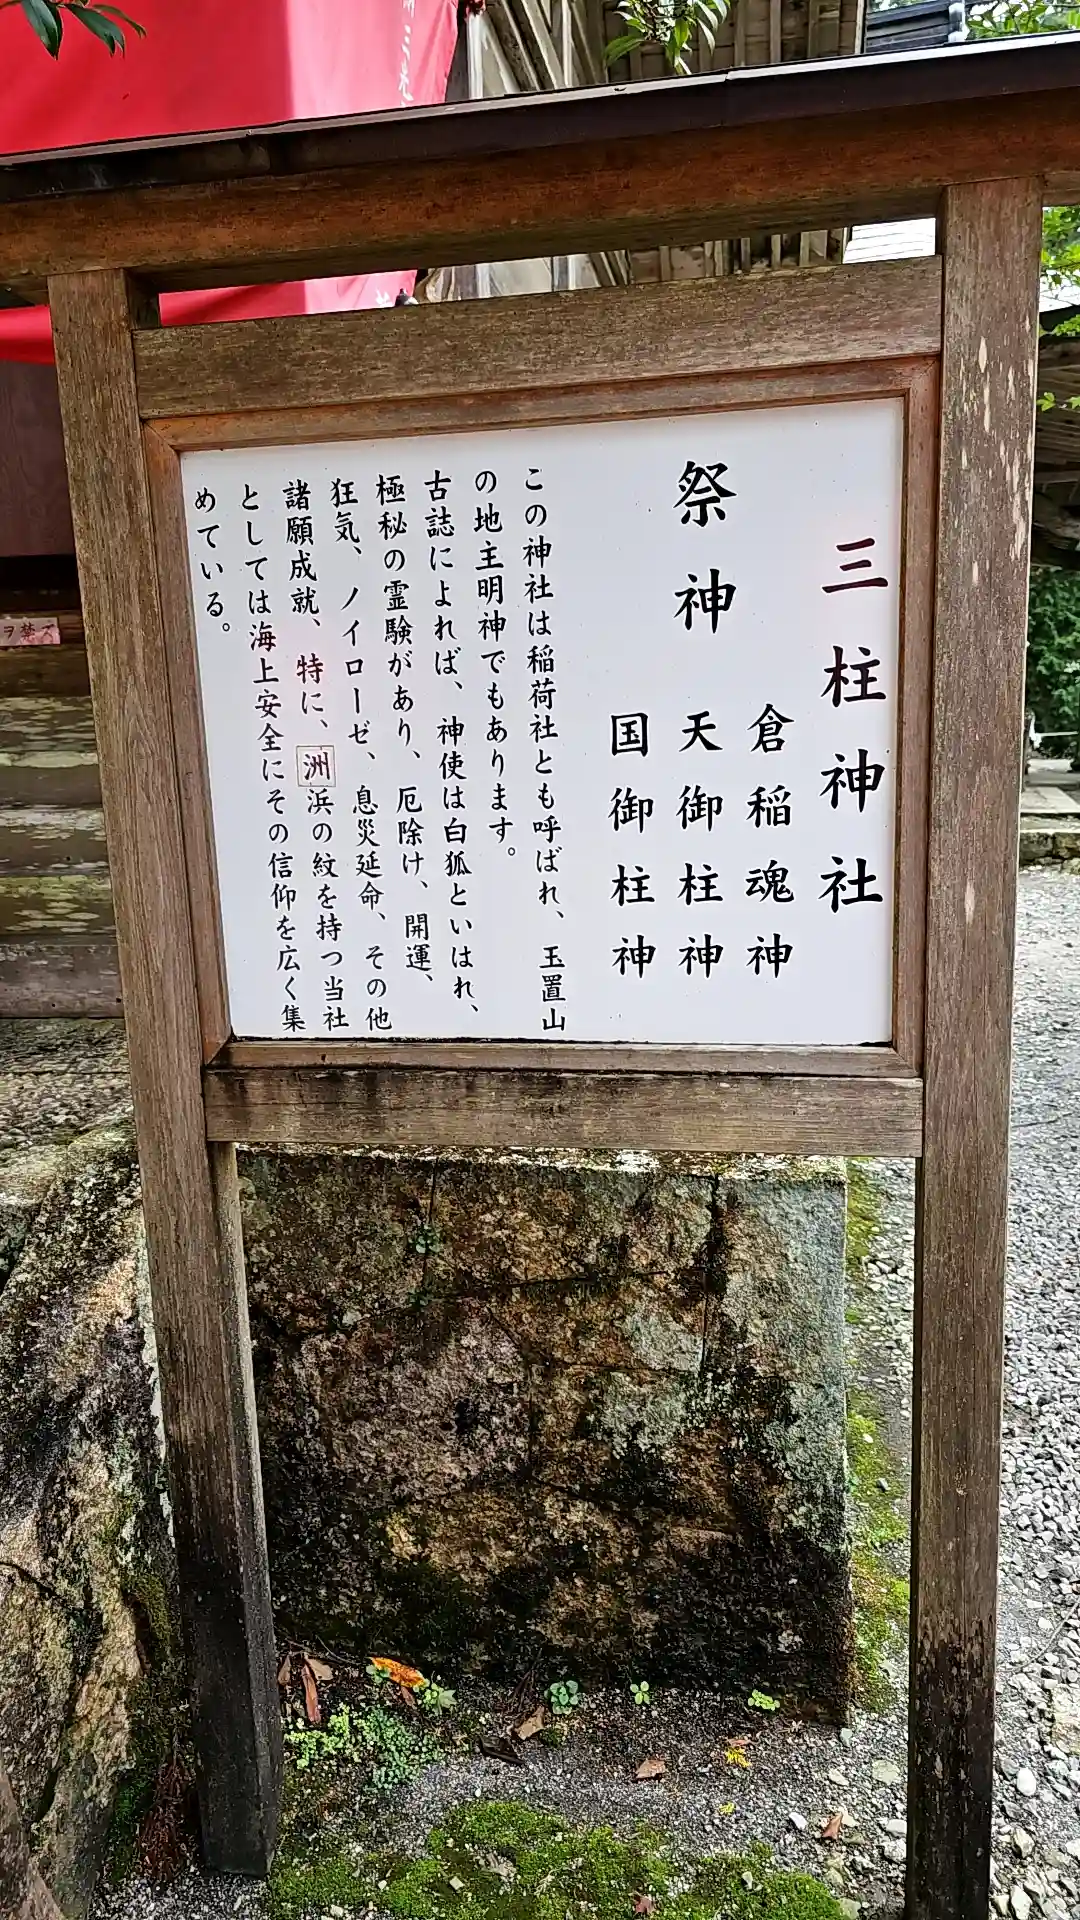 三柱神社
祭神
倉稲魂神
天御柱神
国御柱神
この神社は稲荷社とも呼ばれ、玉置山
の地主明神でもあります。
古誌によれば、神使は白狐といはれ、
極秘の霊験があり、厄除け、開運、
狂気、ノイローゼ、息災延命、その他
諸願成就、特に、洲浜の紋を持つ当社
としては海上安全にその信仰を広く集
めている。
ヲ禁ズ